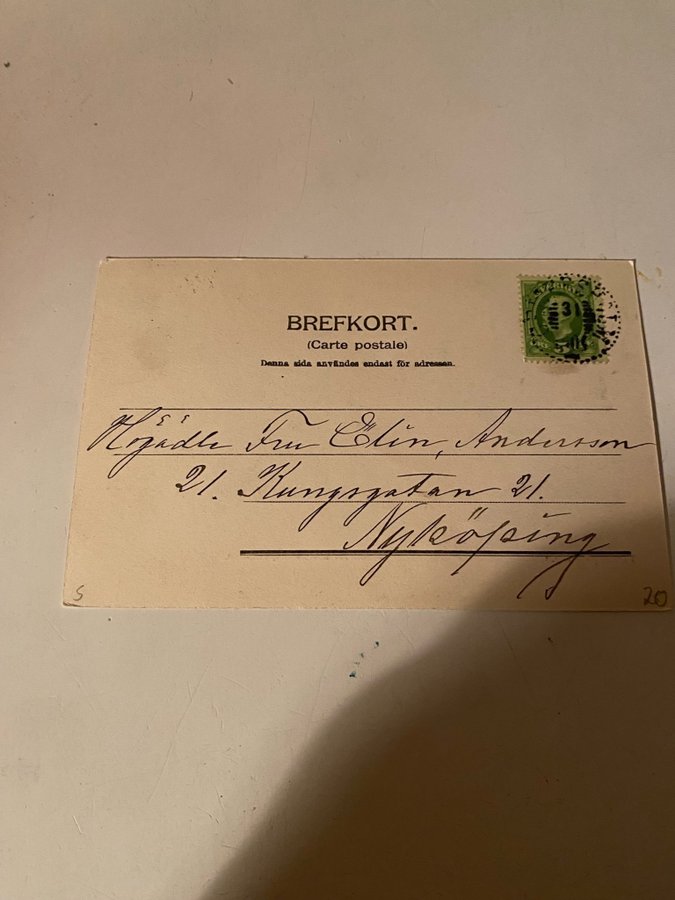 BREFKORT.
(Carte postale)
Denna sida användes endast för adressen.
SVERIGE
31
Högädle Fru Elin, Andersson
21. Kungsgatan 21.
Nyköping
S
20